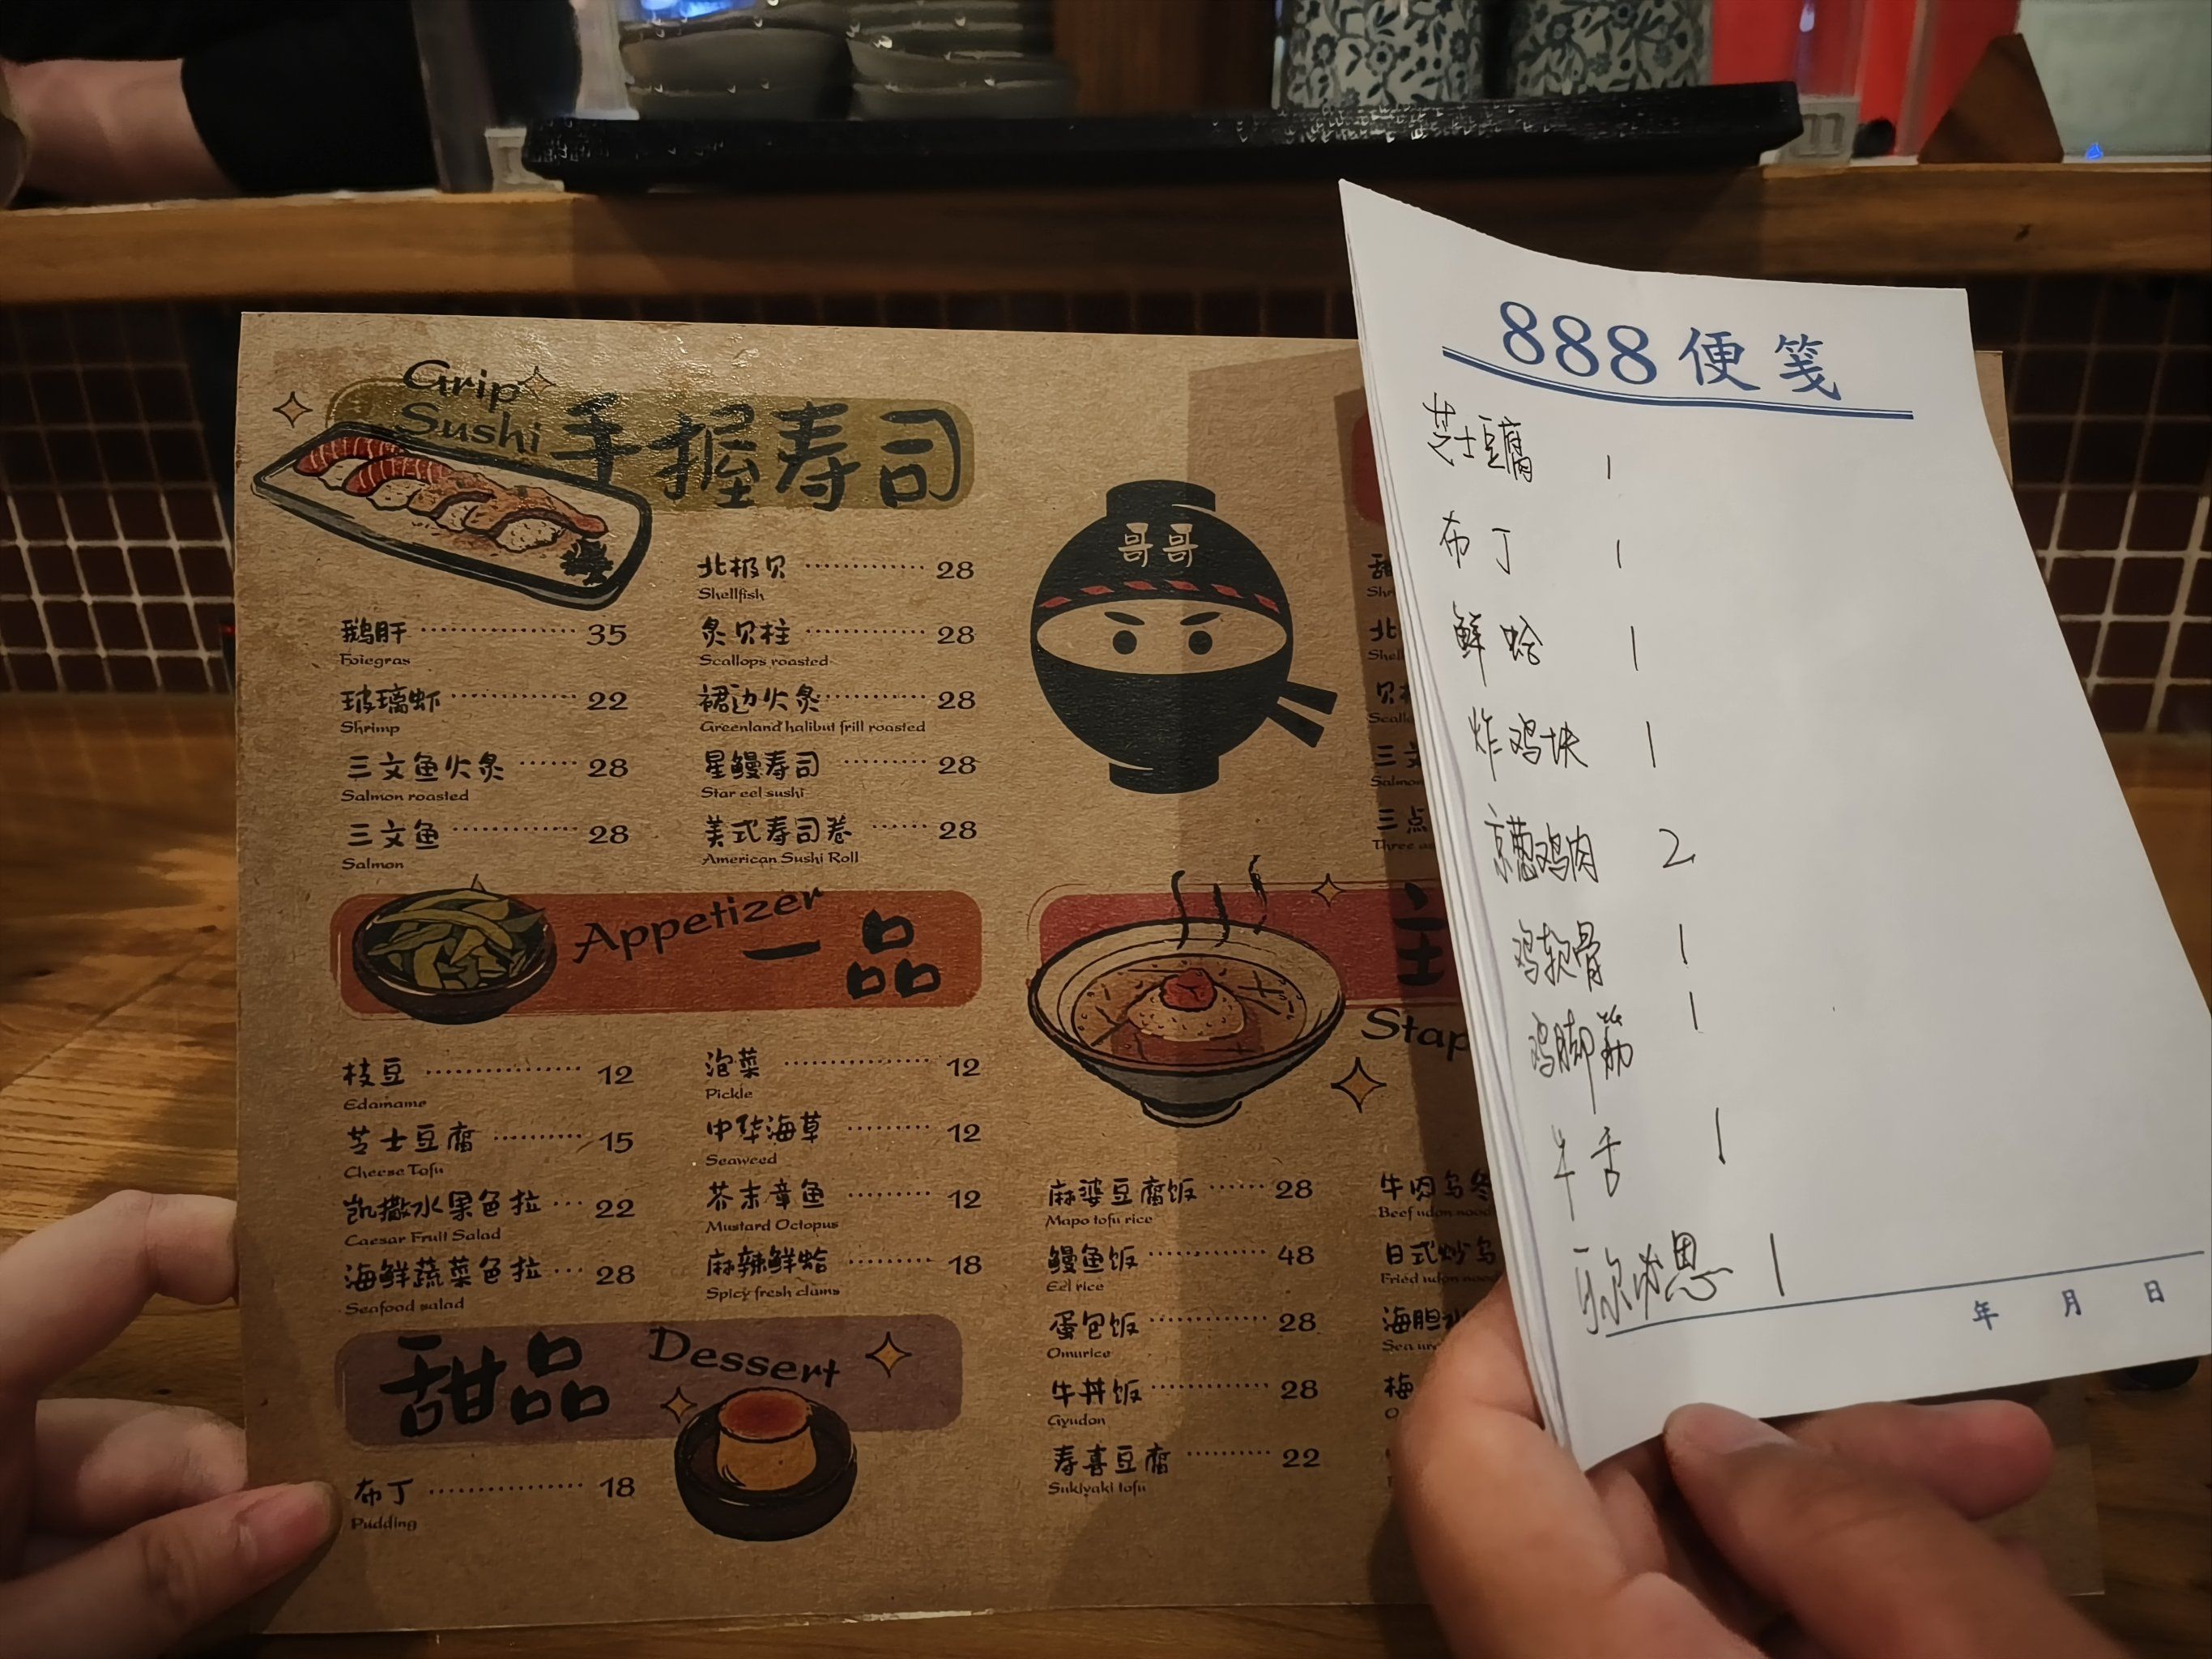 Grip
Sushi
手握寿司
鹅肝 35
Foiegras
玻璃虾 22
Shrimp
三文鱼火炙 28
Salmon roasted
三文鱼 28
Salmon
北极贝 28
Shellfish
炙贝柱 28
Scallops roasted
裙边火炙 28
Greenland halibut frill roasted
星鳗寿司 28
Star eel sushi
美式寿司卷 28
American Sushi Roll
哥哥
Appetizer
一品
枝豆 12
Edamame
芝士豆腐 15
Cheese Tofu
凯撒水果色拉 22
Caesar Fruit Salad
海鲜蔬菜色拉 28
Seafood salad
泡菜 12
Pickle
中华海草 12
Seaweed
芥末章鱼 12
Mustard Octopus
麻辣鲜蛤 18
Spicy fresh clams
甜品
Dessert
布丁 18
Pudding
主
Stap
麻婆豆腐饭 28
Mapo tofu rice
鳗鱼饭 48
Eel rice
蛋包饭 28
Omurice
牛丼饭 28
Gyudon
寿喜豆腐 22
Sukiyaki tofu
牛肉乌冬
Beef udon nood
日式炒乌
Fried udon nood
海胆水
Sea ur
梅
O
甜
Shr
北
Shel
贝柱
Scall
三文
Salmon
三点
Three as
888便笺
芝士豆腐 1
布丁 1
鲜蛤 1
炸鸡块 1
鸡肉 2
鸡软骨 1
鸡脚筋 1
牛舌 1
1
年 月 日